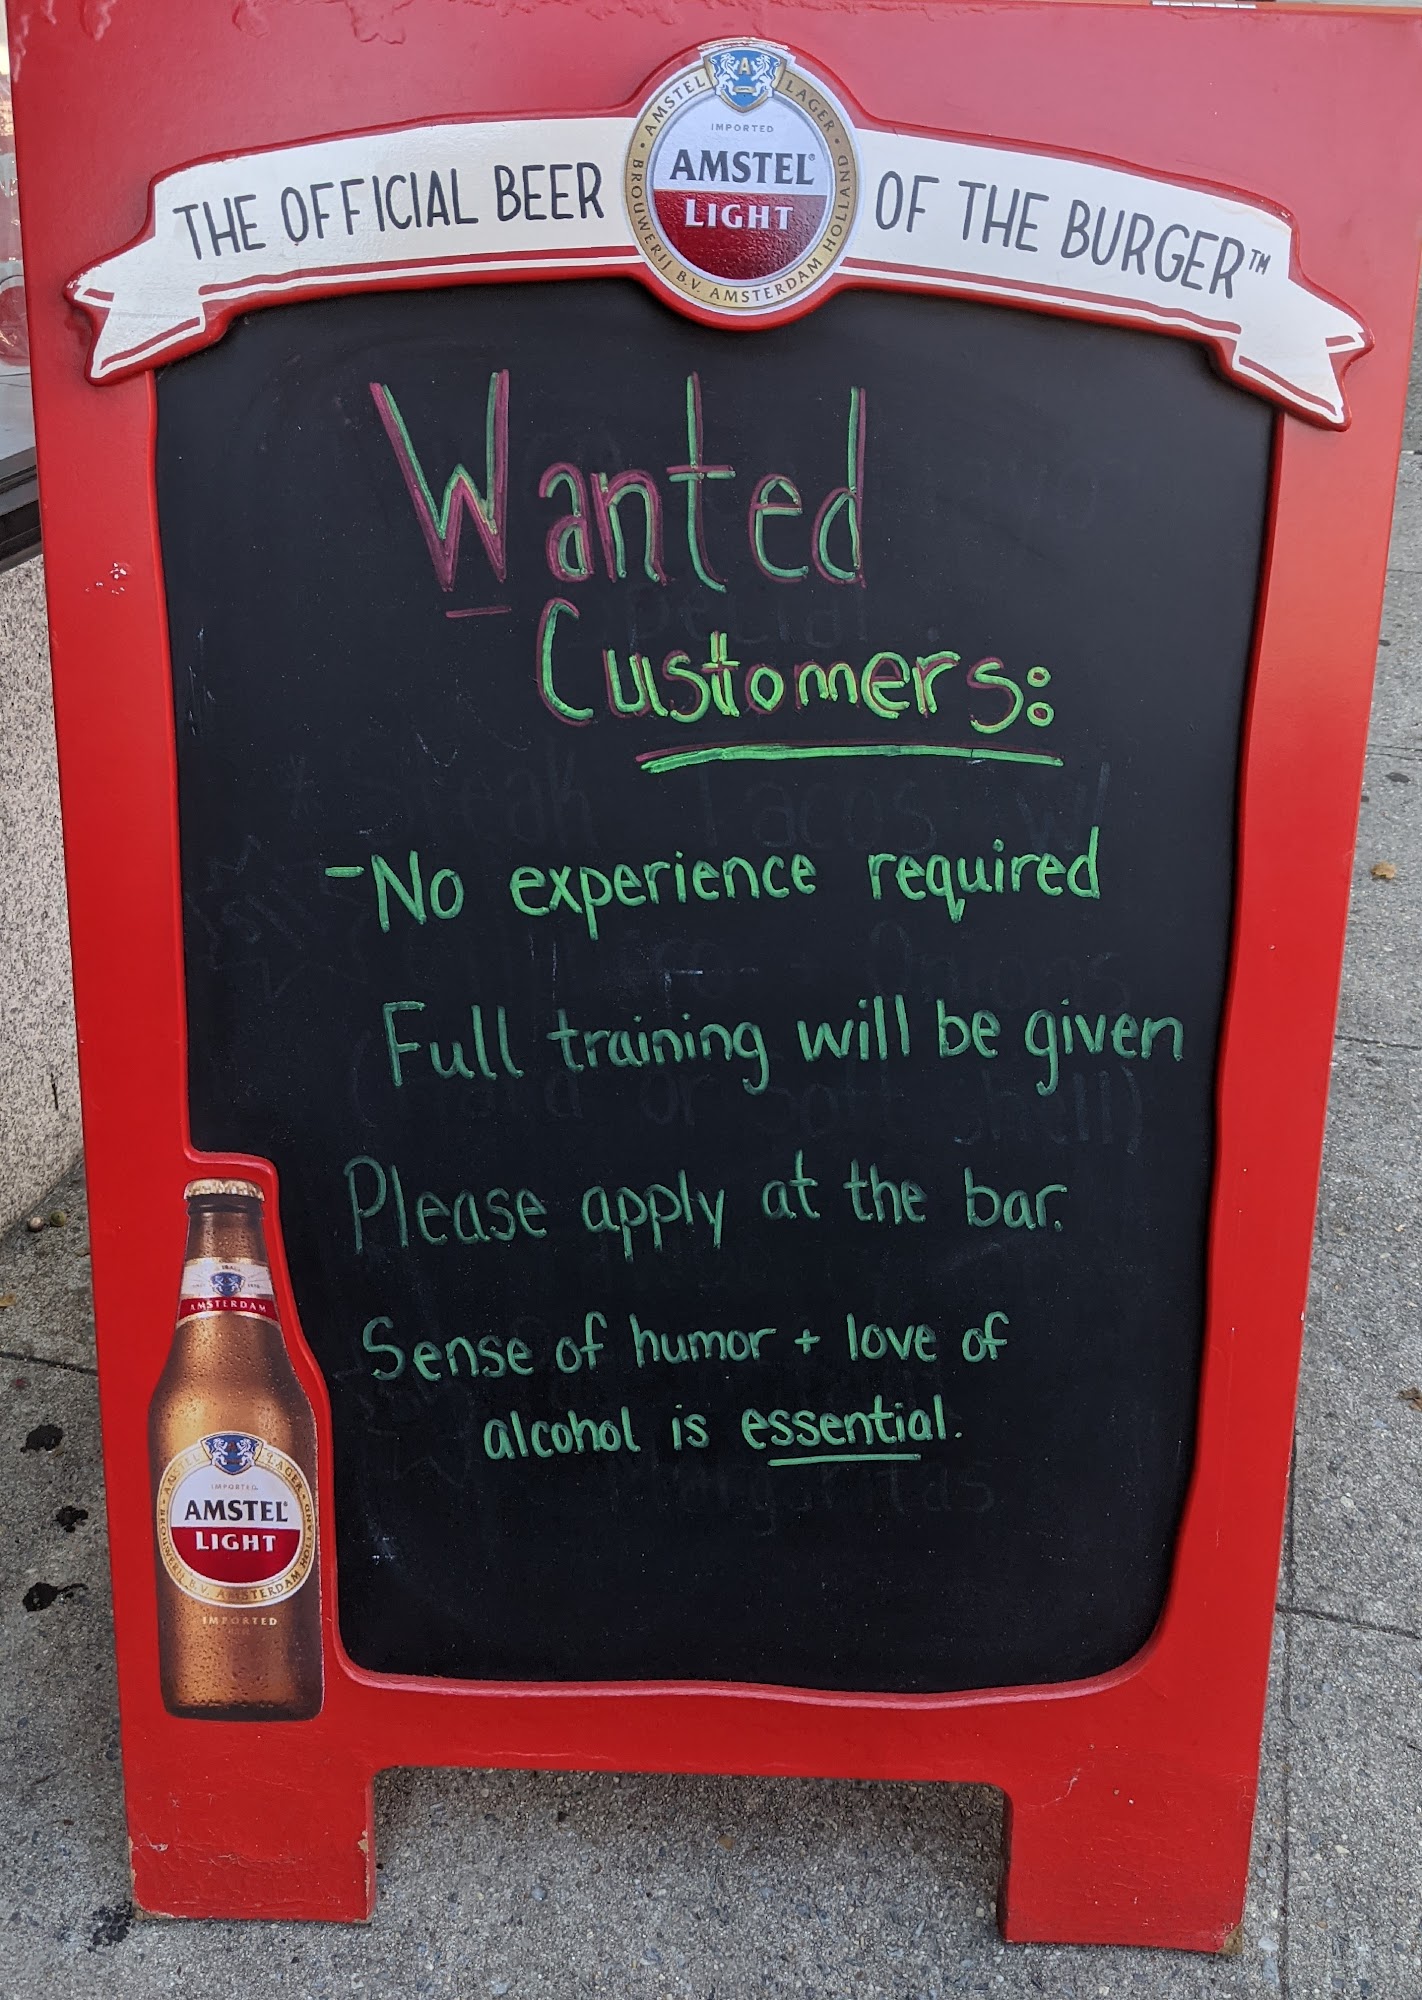 THE OFFICIAL BEER OF THE BURGER™
AMSTEL LAGER
IMPORTED
AMSTEL®
LIGHT
BROUWERIJ B.V. AMSTERDAM HOLLAND
Wanted
Customers:
- No experience required
Full training will be given
Please apply at the bar.
Sense of humor + love of
alcohol is essential.
Special
* Steak Tacos w/
Onions
(hard or soft shell)
Margaritas
AMSTERDAM
AMSTEL LAGER
IMPORTED
AMSTEL®
LIGHT
BROUWERIJ B.V. AMSTERDAM HOLLAND
IMPORTED